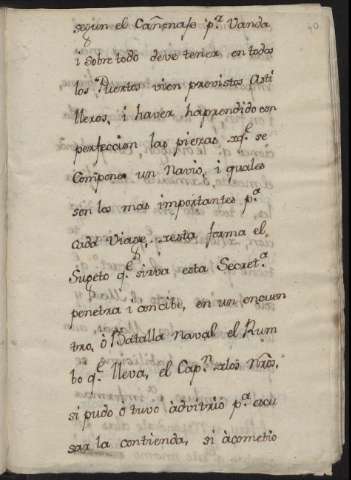 segun el Cañonase p.ª Vanda
i sobre todo deve tener en todos
los Puertos vien previstos Asti
lleros, i haver haprendido con
perfeccion las piezas xq.e se
Compone un Navio, i quales
son las mas importantes p.ª
cada Viage, xesta forma el
Sugeto q.e sirva esta Secret.ª
penetra i concibe, en un encuen
tro, ô Batalla Naval el Rum
bo q.e lleva, el Cap.n xlos Nros,
si pudo ô tuvo advitrio p.ª escu
sar la contienda, si àcometio